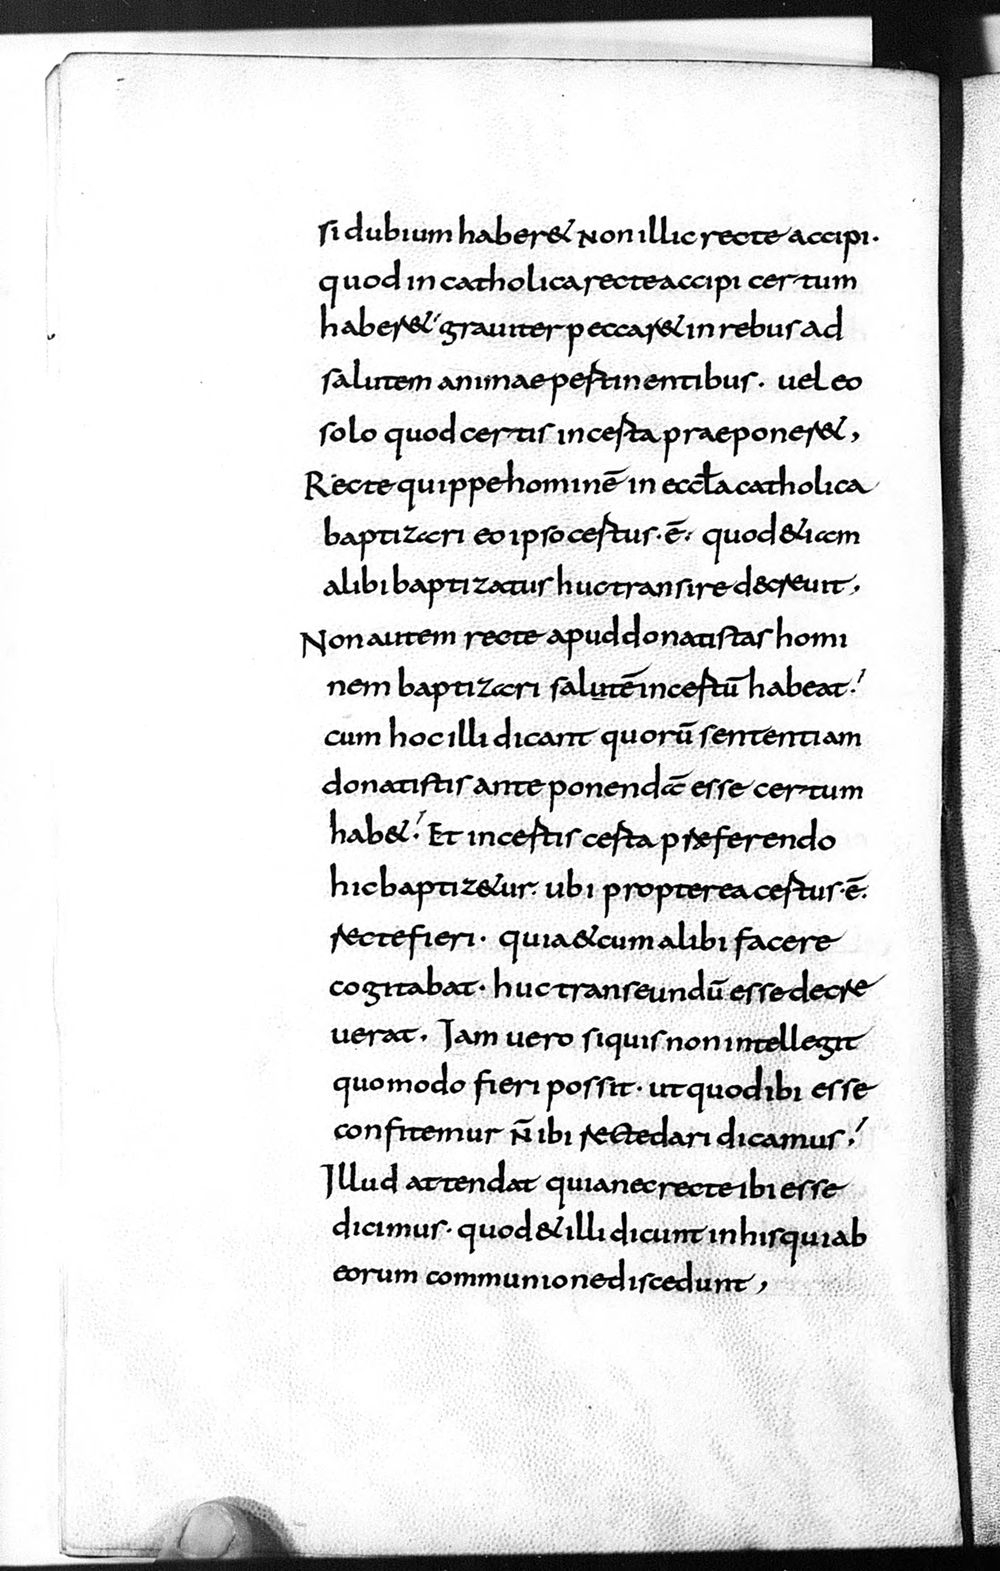 si dubium haber& Non illic recte accipi·
quod in catholica recte accipi certum
haber&' grauiter peccar& in rebus ad
salutem animae pertinentibus· uel eo
solo quod certis incerta praeponer&,
Recte quippe hominē in eccła catholica
baptizari eo ipso certus·ē· quod &iam
alibi baptizatus huc transire decreuit,
Non autem recte apud donatistas homi
nem baptizari salutē incertū habeat.'
cum hoc illi dicant quorū sententiam
donatistis anteponendā esse certum
hab&.' Et incertis certa praeferendo
hic baptiz&ur· ubi propterea certus·ē·
recte fieri· quia & cum alibi facere
cogitabat· huc transeundū esse decre
uerat· Iam uero siquis non intellegit
quomodo fieri possit· ut quod ibi esse
confitemur n̄ ibi recte dari dicamus,'
Illud attendat quia nec recte ibi esse
dicimus· quod & illi dicunt in his qui ab
eorum communione discedunt,